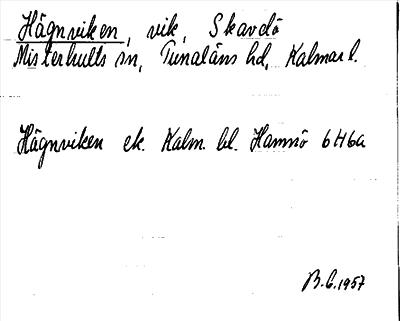 Hägnviken, vik, Skavdö
Misterhults sn, Tunaläns hd, Kalmar l.
Hägnviken ek. Kalm. bl. Hamnö 6H6a
B.G. 1957